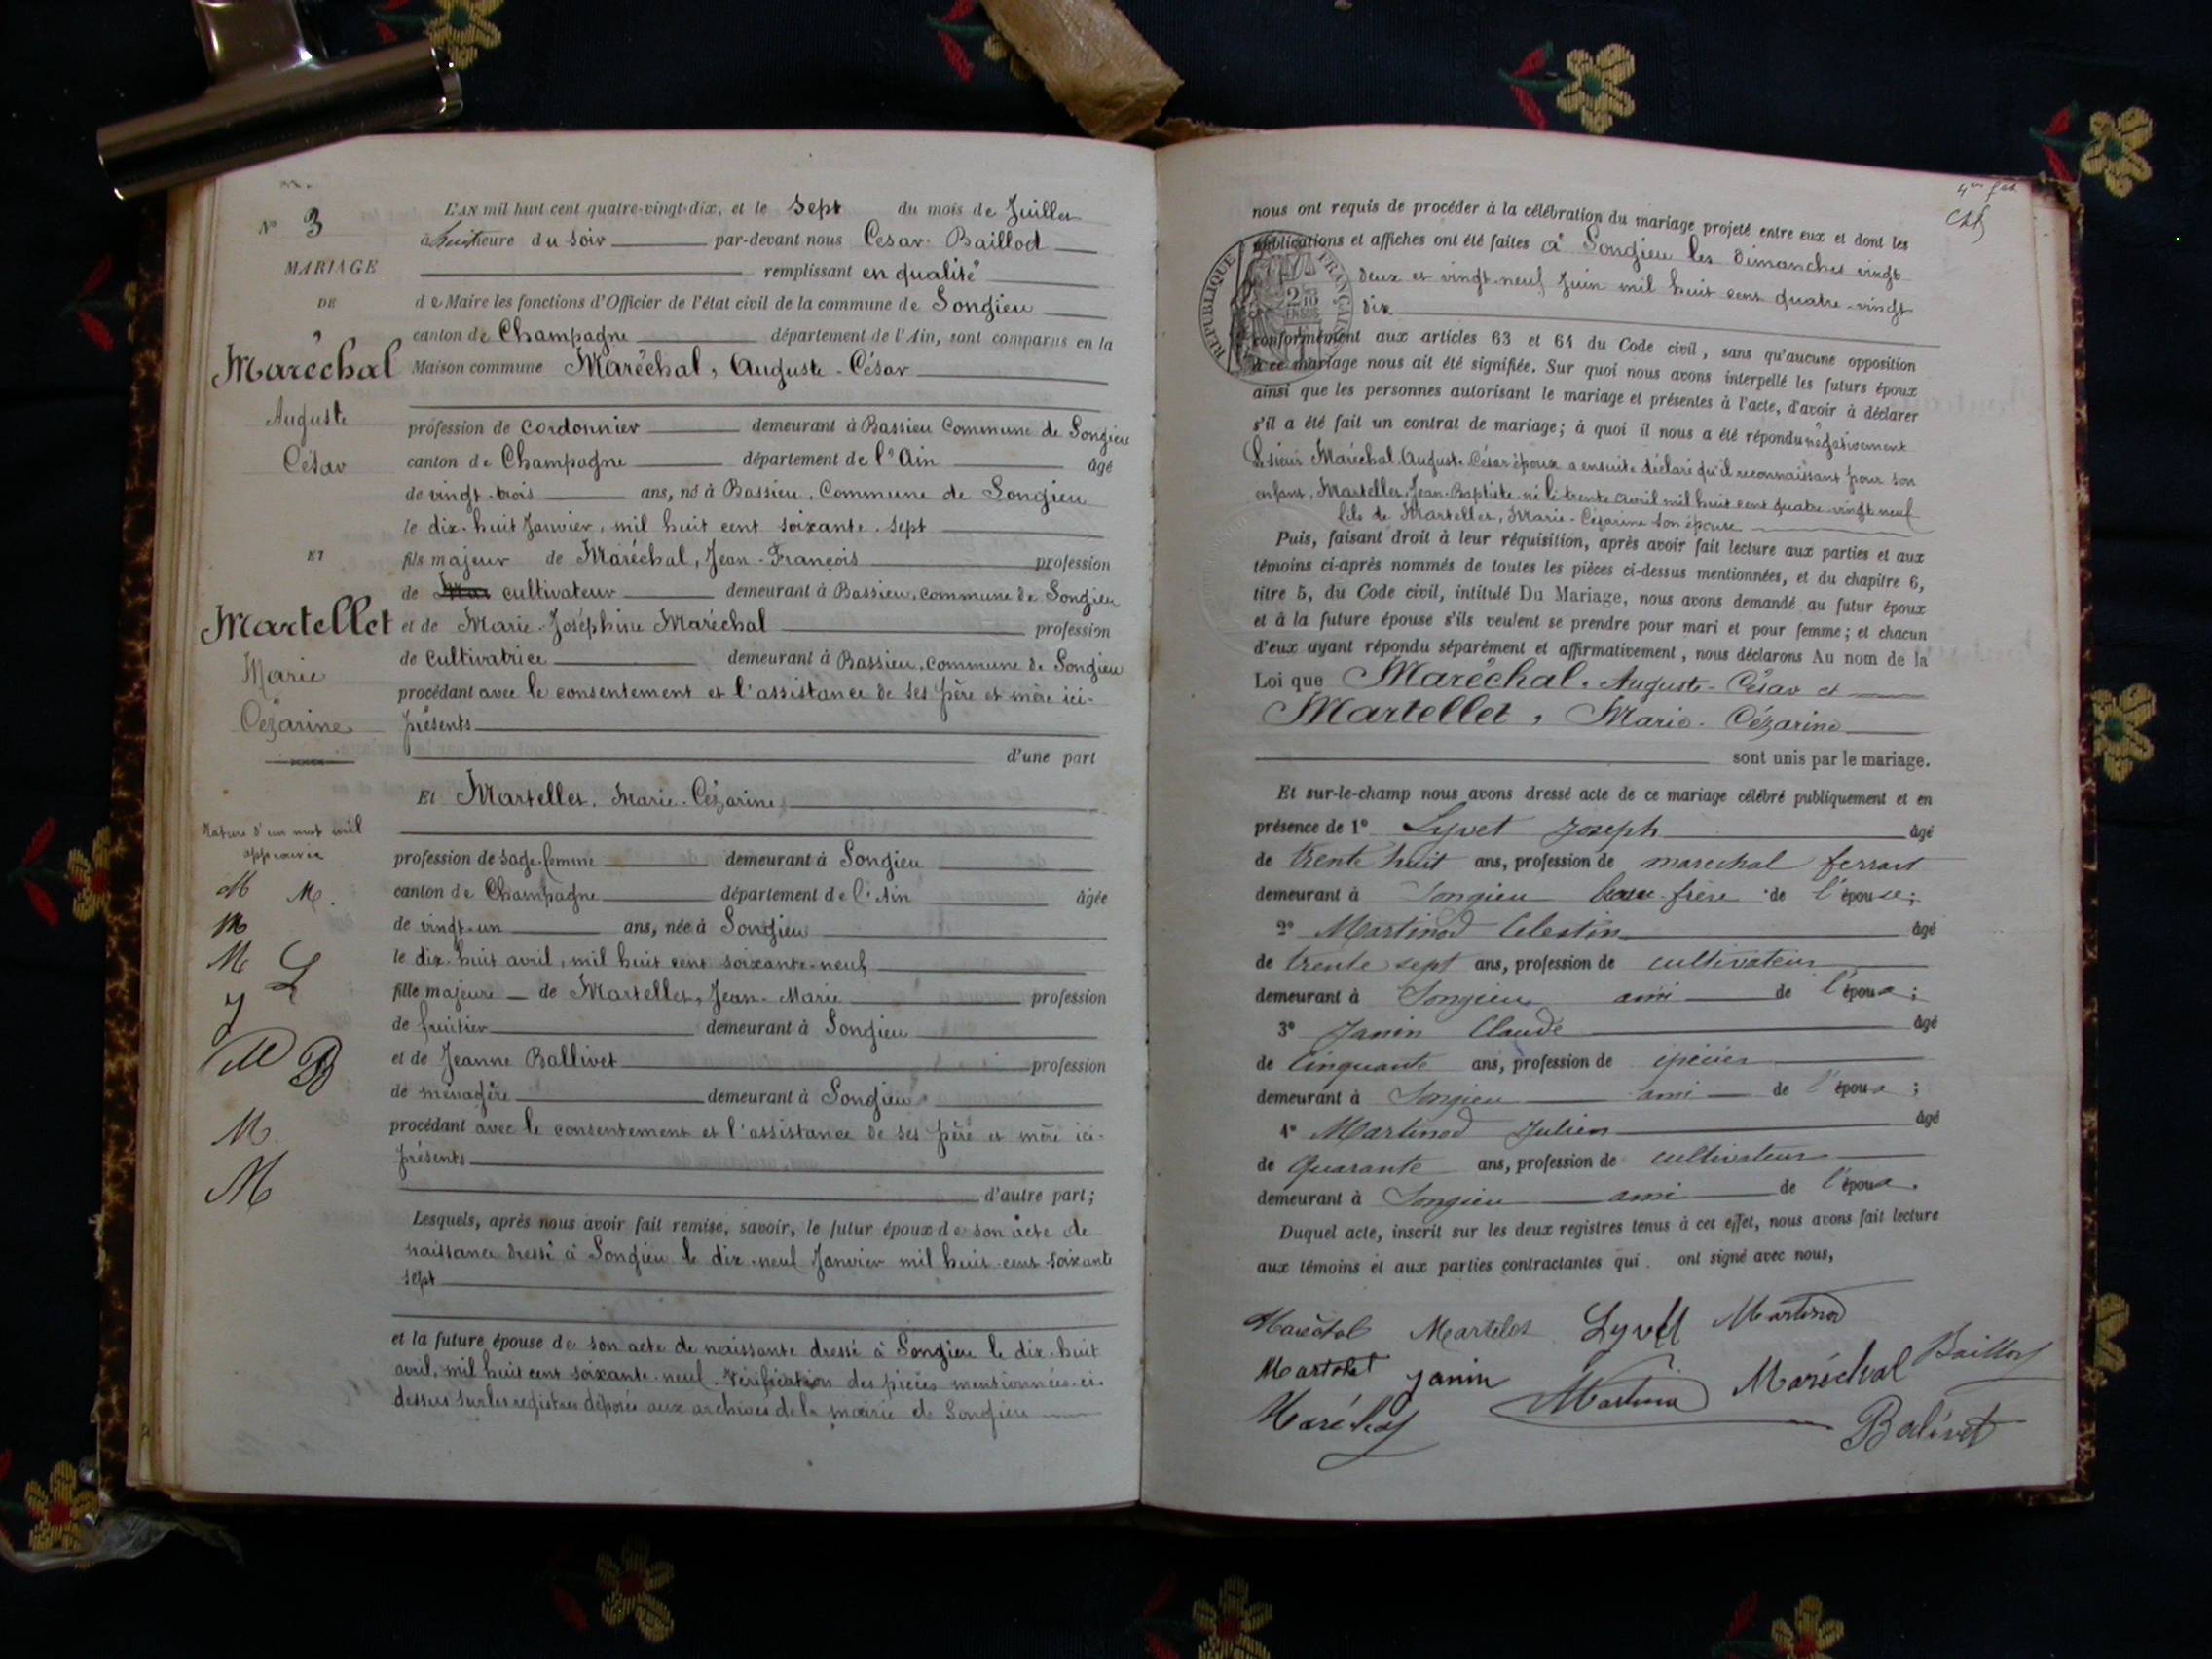 N° 3
MARIAGE
DE
Maréchal
Auguste
César
ET
Martellet
Marie
Cézarine
Rature d'un mot nul
approuvée
M M.
M
M L
J
M B
M
M
L'AN mil huit cent quatre-vingt-dix, et le Sept du mois de Juillet
à huit heure du soir par-devant nous Cesar Baillod
remplissant en qualité
de Maire les fonctions d'Officier de l'état civil de la commune de Songieu
canton de Champagne département de l'Ain, sont comparus en la
Maison commune Maréchal, Auguste-César
profession de cordonnier demeurant à Bassieu Commune de Songieu
canton de Champagne département de l'Ain âgé
de vingt-trois ans, né à Bassieu, Commune de Songieu
le dix-huit Janvier, mil huit cent soixante-sept
fils majeur de Maréchal, Jean-François profession
de cultivateur demeurant à Bassieu, commune de Songieu
et de Marie-Joséphine Maréchal profession
de cultivatrice demeurant à Bassieu, commune de Songieu
procédant avec le consentement et l'assistance de ses père et mère ici-
présents
d'une part
Et Martellet, Marie-Cézarine
profession de sage-femme demeurant à Songieu
canton de Champagne département de l'Ain âgée
de vingt-un ans, née à Songieu
le dix-huit avril, mil huit cent soixante-neuf
fille majeure de Martellet, Jean-Marie profession
de fruitier demeurant à Songieu
et de Jeanne Ballivet profession
de ménagère demeurant à Songieu
procédant avec le consentement et l'assistance de ses père et mère ici-
présents
d'autre part;
Lesquels, après nous avoir fait remise, savoir, le futur époux de son acte de
naissance dressé à Songieu le dix-neuf Janvier mil huit cent soixante
sept
et la future épouse de son acte de naissante dressé à Songieu le dix-huit
avril, mil huit cent soixante-neuf. Vérification des pièces mentionnées ci-
dessus sur les registres déposés aux archives de la mairie de Songieu
nous ont requis de procéder à la célébration du mariage projeté entre eux et dont les
publications et affiches ont été faites à Songieu les Dimanches vingt
deux et vingt-neuf Juin mil huit cent quatre-vingt
dix
RÉPUBLIQUE FRANÇAISE
conformément aux articles 63 et 64 du Code civil, sans qu'aucune opposition
à ce mariage nous ait été signifiée. Sur quoi nous avons interpellé les futurs époux
ainsi que les personnes autorisant le mariage et présentes à l'acte, d'avoir à déclarer
s'il a été fait un contrat de mariage; à quoi il nous a été répondu négativement
Le sieur Maréchal Auguste César époux a ensuite déclaré qu'il reconnaissant pour son
enfant, Martellet, Jean-Baptiste né le trente avril mil huit cent quatre-vingt neuf
fils de Martellet, Marie-Cézarine son épouse
Puis, faisant droit à leur réquisition, après avoir fait lecture aux parties et aux
témoins ci-après nommés de toutes les pièces ci-dessus mentionnées, et du chapitre 6,
titre 5, du Code civil, intitulé Du Mariage, nous avons demandé au futur époux
et à la future épouse s'ils veulent se prendre pour mari et pour femme; et chacun
d'eux ayant répondu séparément et affirmativement, nous déclarons Au nom de la
Loi que Maréchal, Auguste-César et
Martellet, Marie-Cézarine
sont unis par le mariage.
Et sur-le-champ nous avons dressé acte de ce mariage célébré publiquement et en
présence de 1° Lyvet Joseph âgé
de trente huit ans, profession de marechal ferrant
demeurant à Songieu beau-frère de l'épouse;
2° Martinod Celestin âgé
de trente sept ans, profession de cultivateur
demeurant à Songieu ami de l'époux;
3° Janin Claude âgé
de Cinquante ans, profession de épicier
demeurant à Songieu ami de l'époux;
4° Martinod Julien âgé
de Quarante ans, profession de cultivateur
demeurant à Songieu ami de l'époux.
Duquel acte, inscrit sur les deux registres tenus à cet effet, nous avons fait lecture
aux témoins et aux parties contractantes qui ont signé avec nous,
Maréchal Martelet Lyvet Martinod
Martelet Janin Martinod Maréchal Baillod
Maréchal Balivet